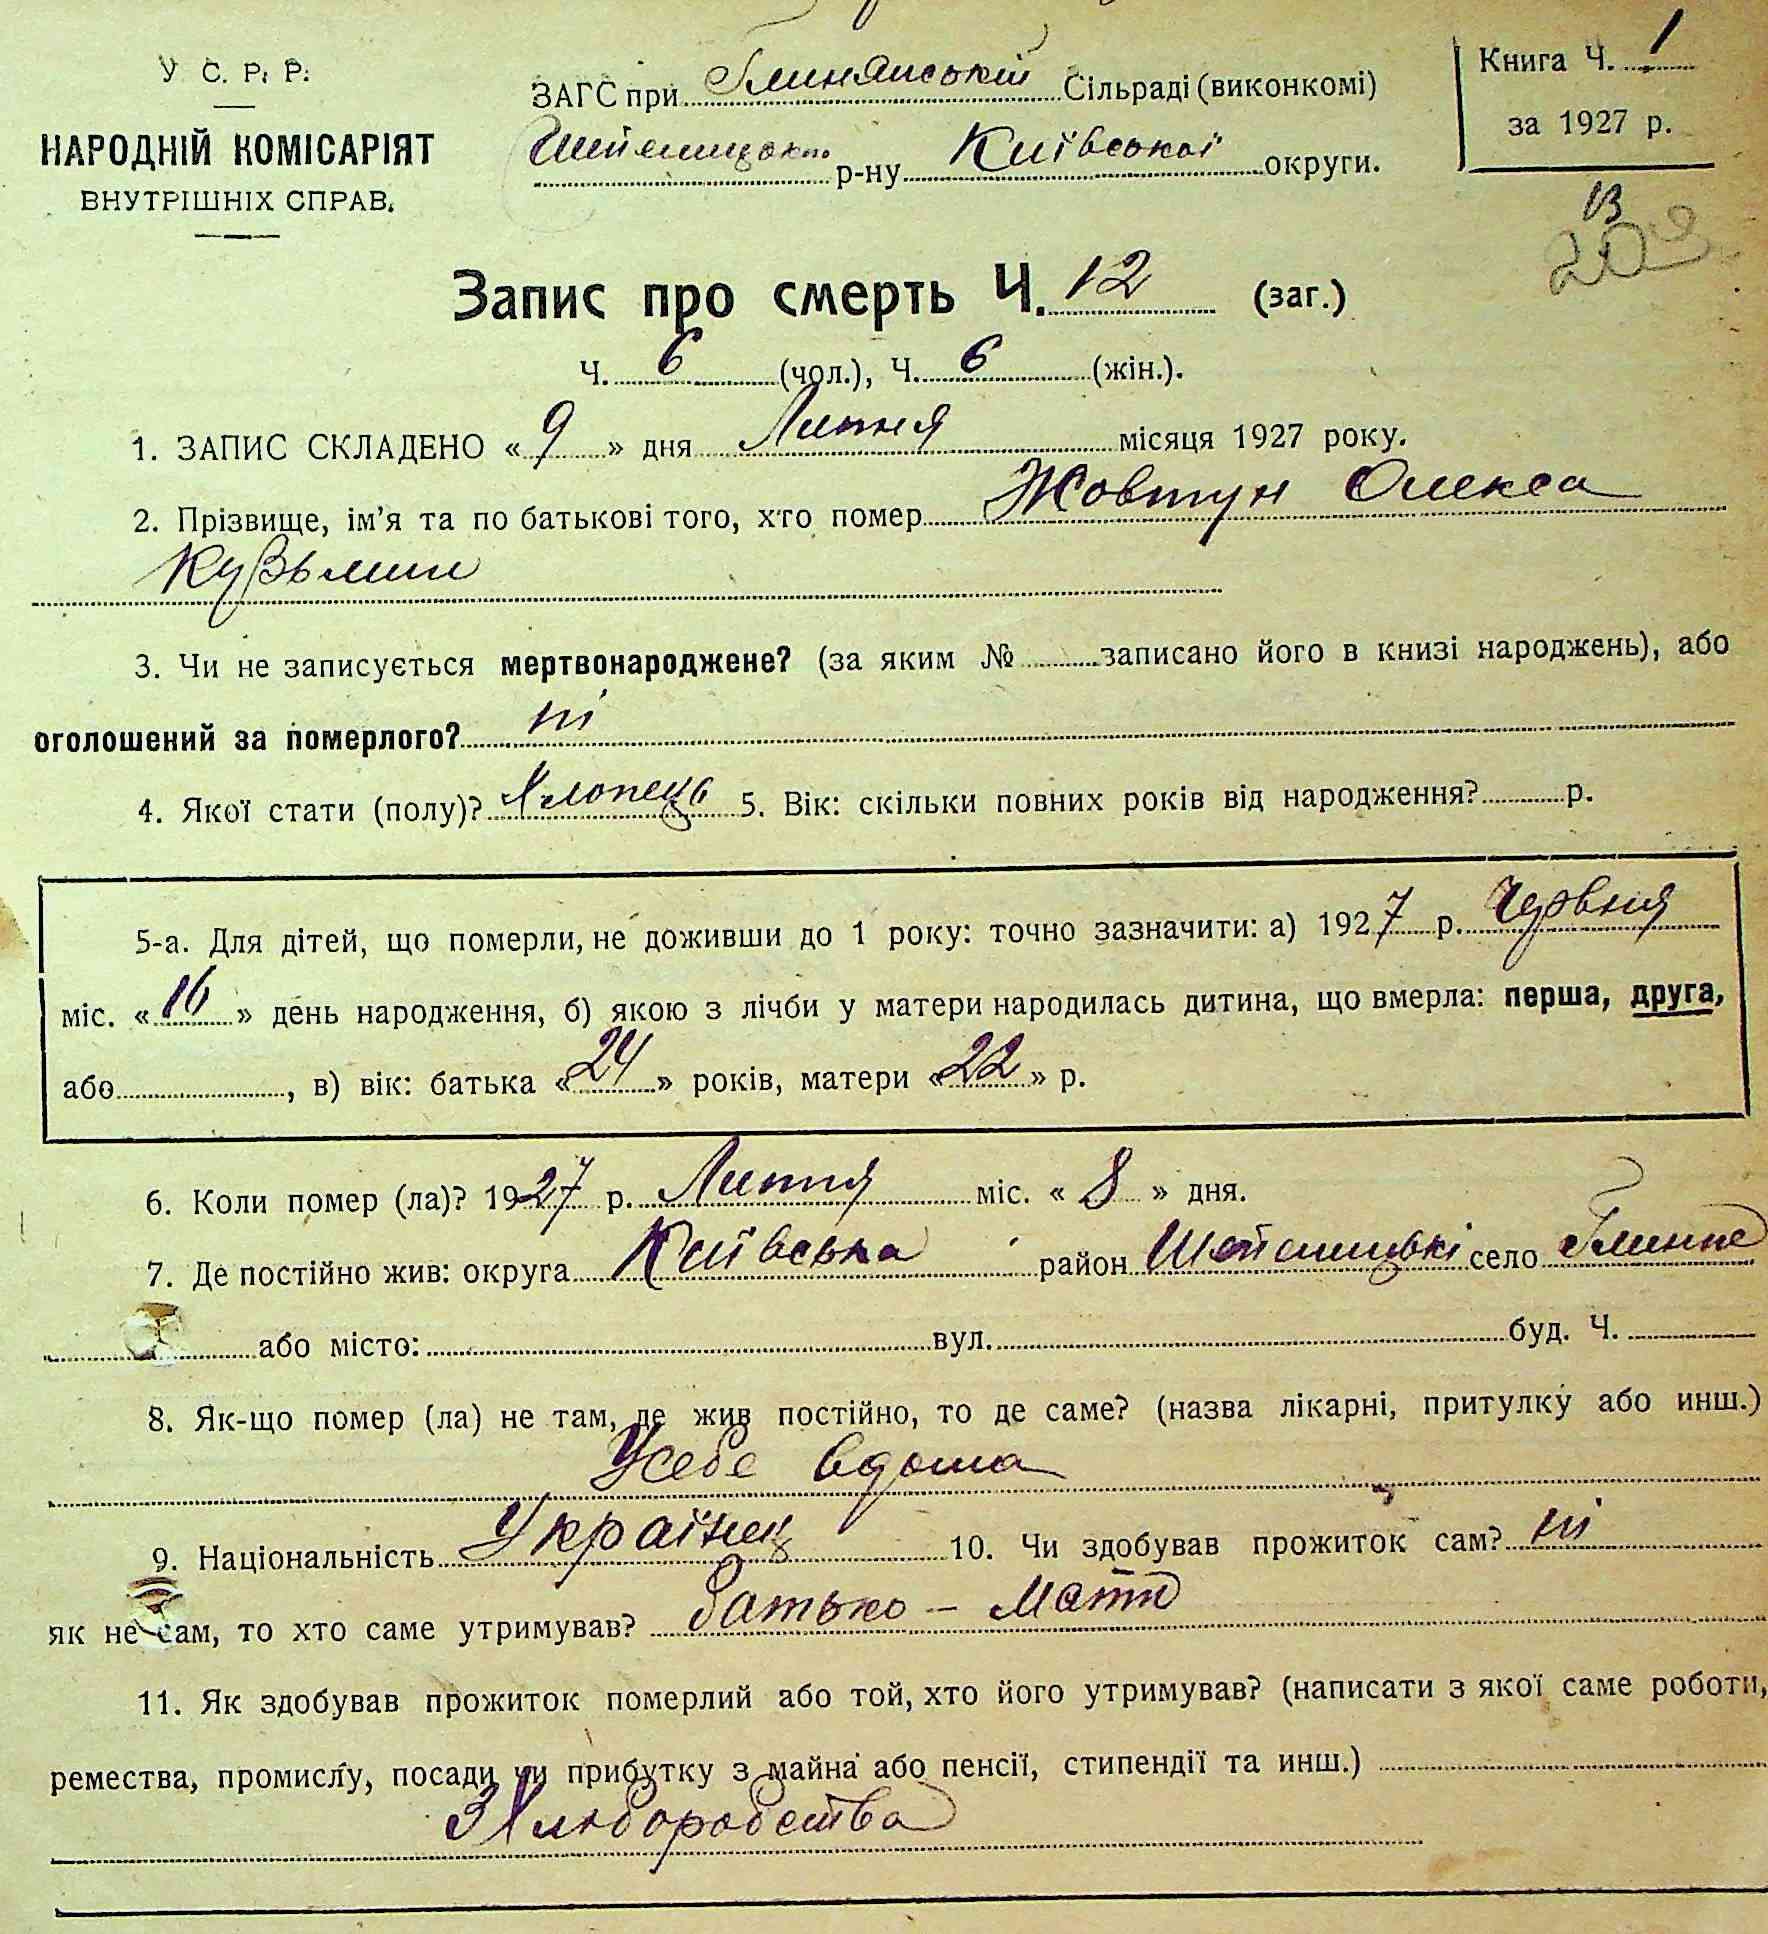 У. С. Р. Р.
НАРОДНІЙ КОМІСАРІЯТ
ВНУТРІШНІХ СПРАВ.
ЗАГС при Глинянській Сільраді (виконкомі)
р-ну Київської округи.
Книга Ч. 1
за 1927 р.
13
209
Запис про смерть Ч. 12 (заг.)
Ч. 6 (чол.), Ч. 6 (жін.).
1. ЗАПИС СКЛАДЕНО « 9 » дня Липня місяця 1927 року.
2. Прізвище, ім'я та по батькові того, хто помер Жовтун Олекса
Кузьмин
3. Чи не записується мертвонароджене? (за яким № записано його в книзі народжень), або
оголошений за померлого? ні
4. Якої стати (полу)? Хлопець 5. Вік: скільки повних років від народження? р.
5-а. Для дітей, що померли, не доживши до 1 року: точно зазначити: а) 1927 р. Червня
міс. « 16 » день народження, б) якою з лічби у матери народилась дитина, що вмерла: перша, друга,
або , в) вік: батька « 24 » років, матери « 22 » р.
6. Коли помер (ла)? 1927 р. Липня міс. « 8 » дня.
7. Де постійно жив: округа Київська район село Глинне
або місто: вул. буд. Ч.
8. Як-що помер (ла) не там, де жив постійно, то де саме? (назва лікарні, притулку або инш.)
Усебе вдома
9. Національність Українец 10. Чи здобував прожиток сам? ні
як не сам, то хто саме утримував? Батько – Мати
11. Як здобував прожиток померлий або той, хто його утримував? (написати з якої саме роботи,
ремества, промислу, посади чи прибутку з майна або пенсії, стипендії та инш.)
З Хлюборобства